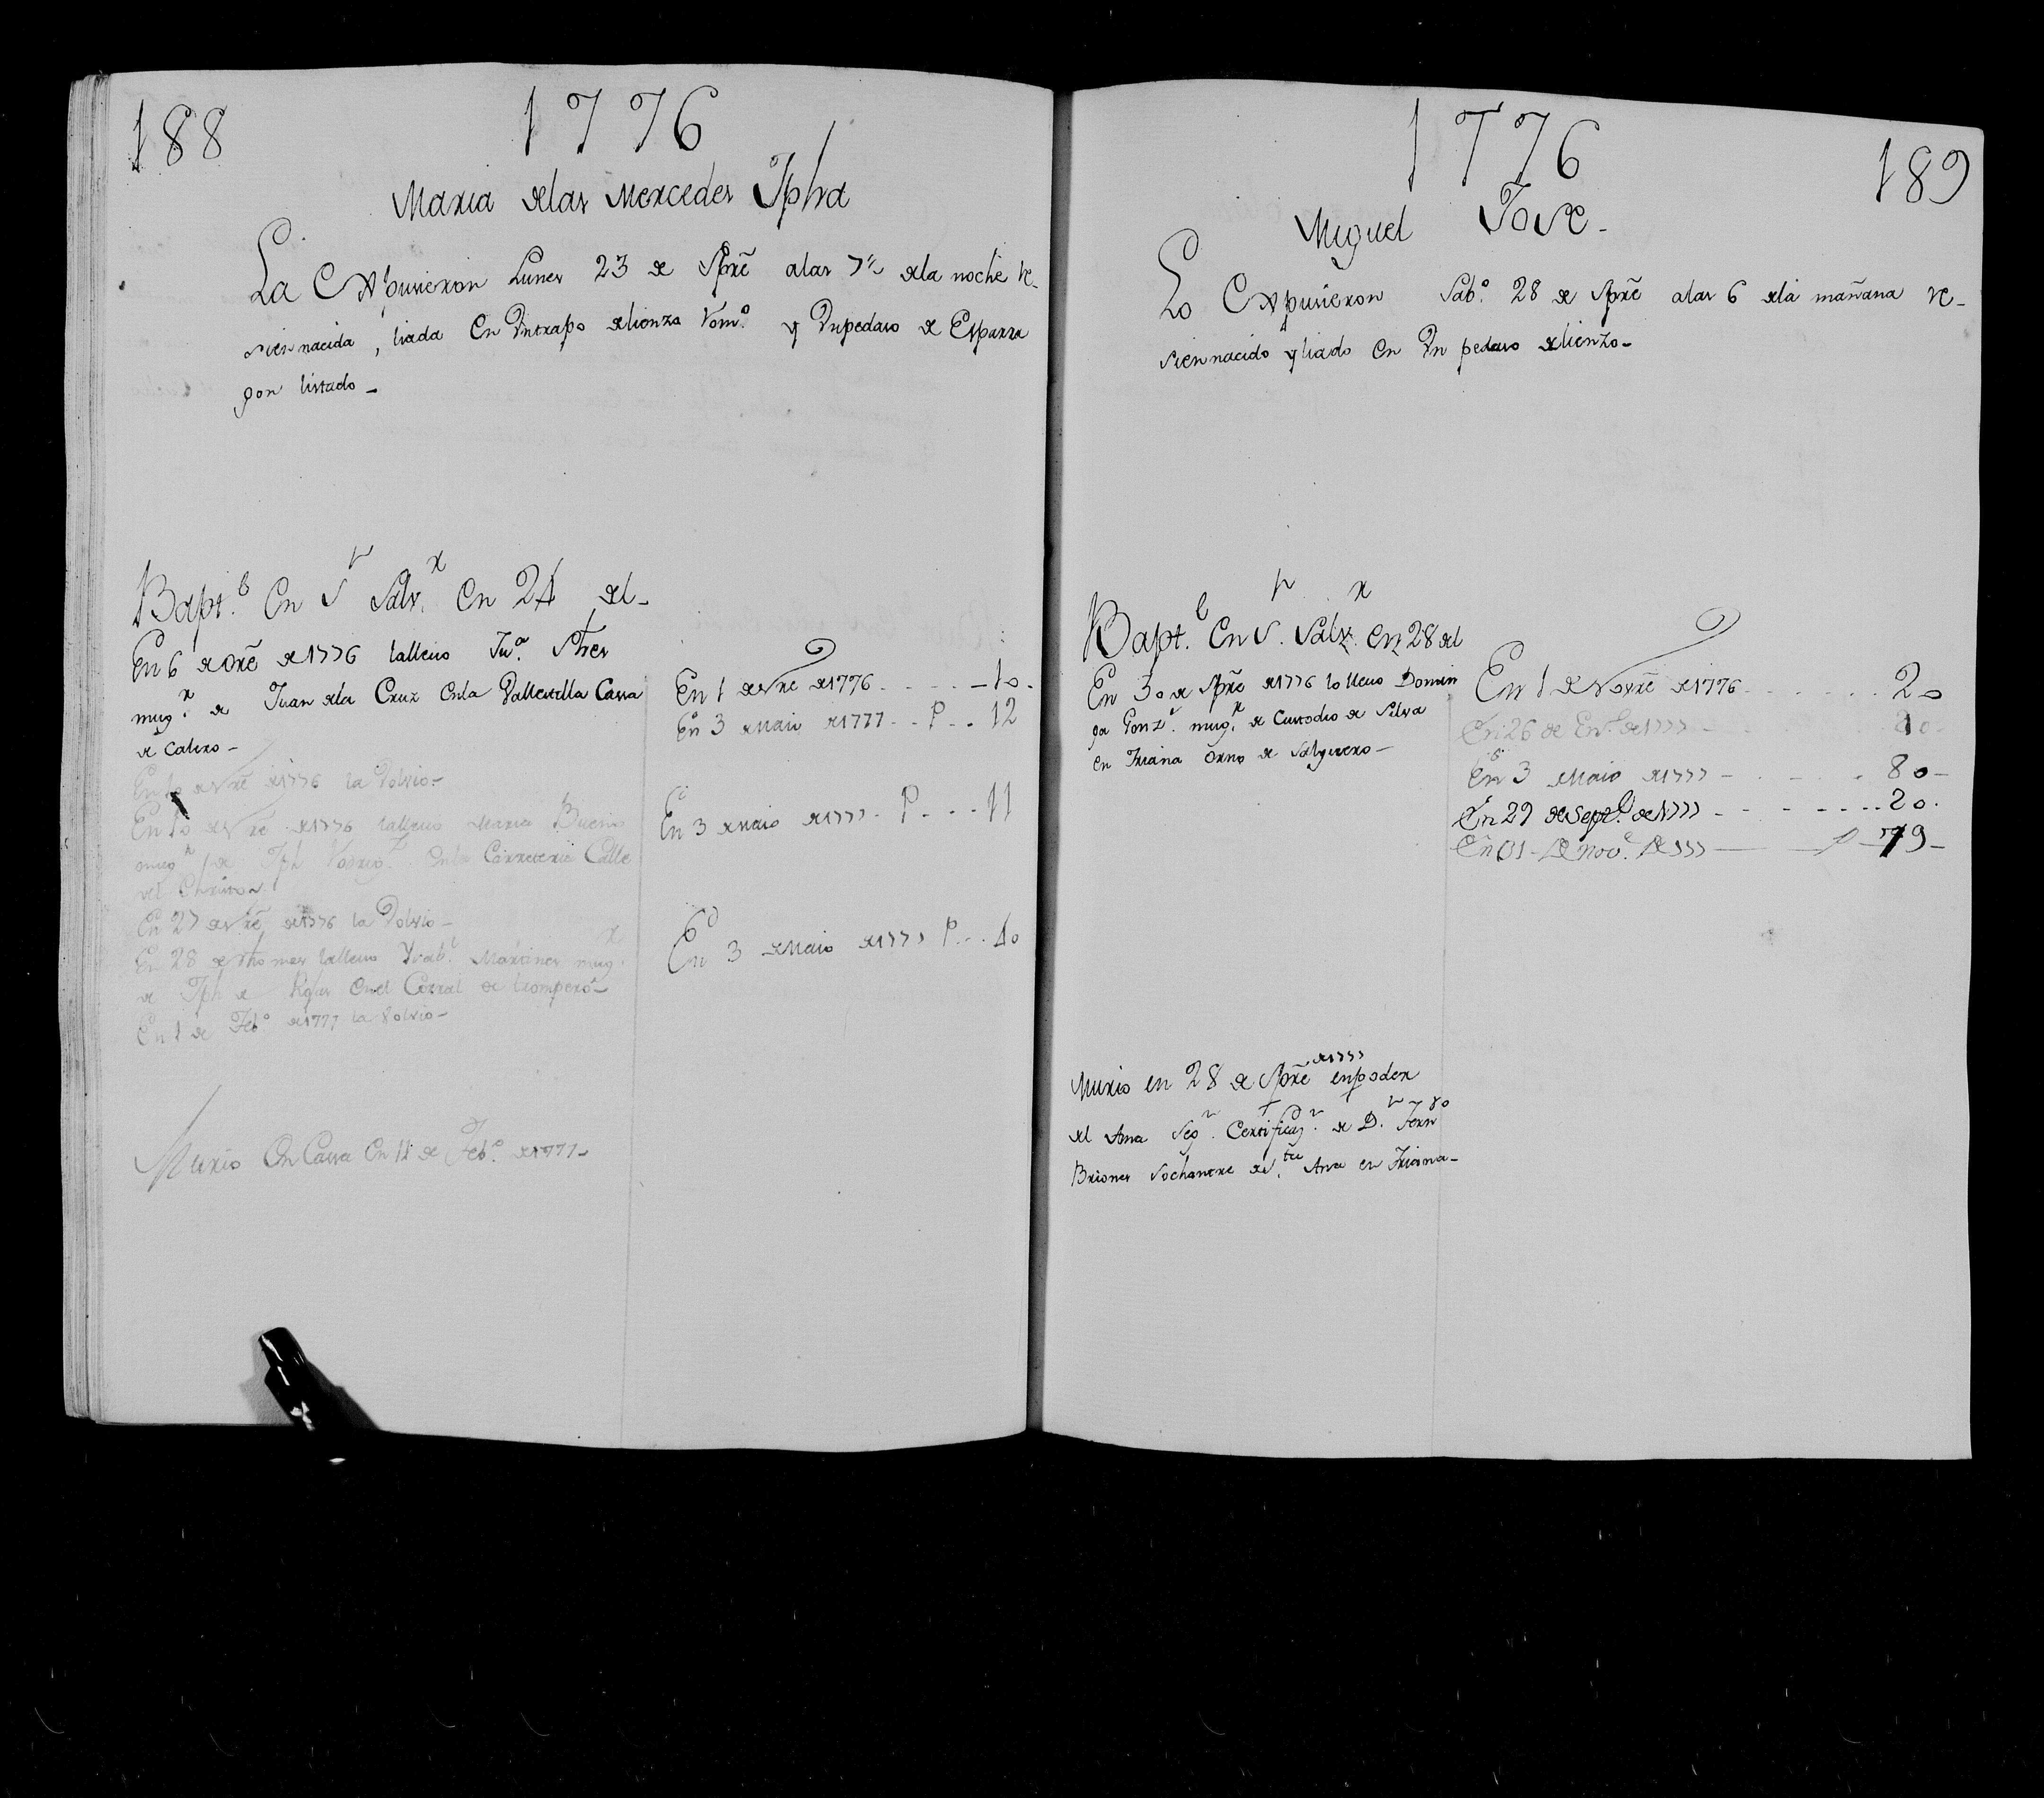 188
1776
Maria delas Mercedes Jpha
La Expusieron Lunes 23 de Spre alas 7 1/2 dela noche re-
siennacida, liada en Vntrapo delienzo Rom.o y Vnpedaso de Esparra
gon listado -
Bapt.o En S.r Salv.r En 24 del-
En 6 de Ore de 1776 lalleuo Ju.a Schez
mug.r de Juan dela Cruz Enla Vallestilla Cassa
de Calero -
En 10 de Nre de 1776 la Volvio -
En 10 de Nre de 1776 lalleuo Maria Bueno
mug.r de Jph Rodrig.z Enla Carreteria Calle
del Christo -
En 27 de Nre de 1776 la Volvio -
En 28 de dho mes lalleuo Ysab.l Martines mug.r
de Jph de Roxas Enel Corral de tromperos -
En 1 de Feb.o de 1777 la Volvio -
Murio En Cassa En 11 de Feb.o de 1777 -
En 1 de Nre de 1776 - - - 10 -
En 3 de Maio de 1777 - - P - - 12
En 3 de Maio de 1777 - P - - - 11
En 3 de Maio de 1777 P - - - 40
1776
189
Miguel Jose -
Lo Expusieron Sab.o 28 de Spre alas 6 dela mañana re-
siennacido y liado en Vn pedaso delienzo -
Bapt.o En S.r Salv.r en 28 del
En 30 de Spre de 1776 lo lleuo Domin
ga Gonz.z mug.r de Custodio de Silva
en Triana Orno de Salguero -
Murio en 28 de Spre de 1777 enpoder
del Ama Seg.n Certificaz.n de D.n Fern.do
Briones Sochantre de S.ta Ana en Triana -
En 1 de Novre de 1776 - - - 20
En 26 de En.o de 1777 - - -
En 3 de Maio de 1777 - - - 80 -
En 29 de Sept.e de 1777 - - - 20 -
En 01 de Nov.e de 777 - P - 79 -